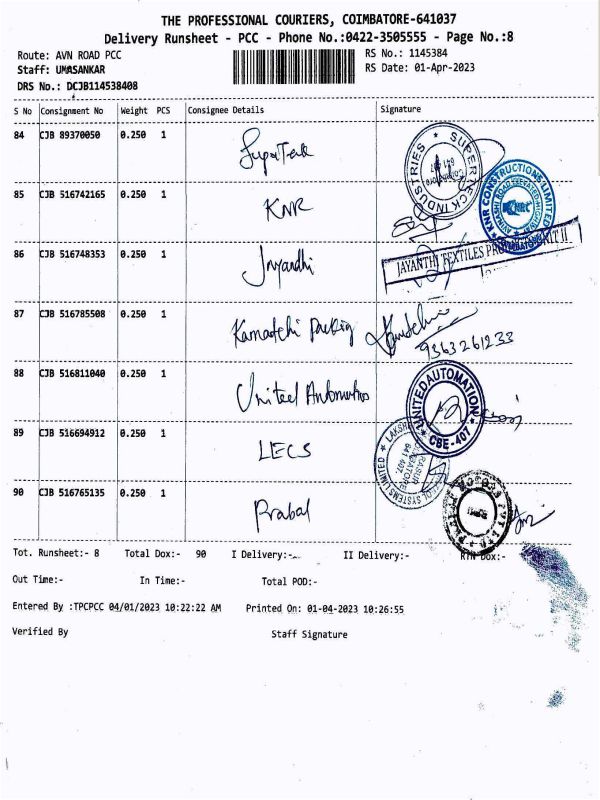 THE PROFESSIONAL COURIERS, COIMBATORE-641037
Delivery Runsheet - PCC - Phone No.:0422-3505555 - Page No.:8
Route: AVN ROAD PCC
RS No.: 1145384
Staff: UMASANKAR
RS Date: 01-Apr-2023
DRS No.: DCJB114538408
S No Consignment No Weight PCS Consignee Details Signature
84 CJB 89370050 0.250 1
SUPER TECK INDUSTRIES
85 CJB 516742165 0.250 1 KNR
KNR CONSTRUCTIONS LIMITED
86 CJB 516748353 0.250 1 Jayandhi
JAYANTHI TEXTILES UNIT II
87 CJB 516785508 0.250 1 Kamatchi Packing
9363261233
88 CJB 516811040 0.250 1 United Automation
UNITED AUTOMATION
CBE-407
89 CJB 516694912 0.250 1 LECS
SYSTEMS LIMITED
641 407.
90 CJB 516765135 0.250 1 Prabal
Tot. Runsheet:- 8 Total Dox:- 90 I Delivery:- II Delivery:- RTN Dox:-
Out Time:- In Time:- Total POD:-
Entered By :TPCPCC 04/01/2023 10:22:22 AM Printed On: 01-04-2023 10:26:55
Verified By Staff Signature